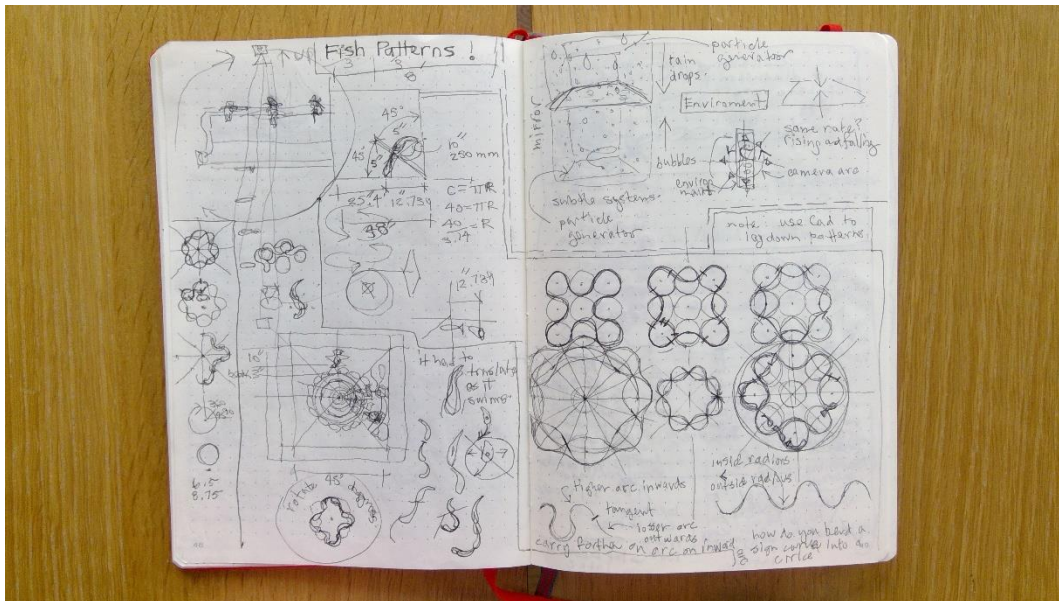 Fish Patterns !
3
3
8
45°
5"
45°
5"
10"
250 mm
12.739
C = πR
40 = πR
40 = R
3.14
48"
12.739
it has to
translate
as it
swims.
10"
6.5
8.75
rotate 45° diagnoss
48
particle
generator
rain
drops.
mirror
Enviroment
same rate?
rising and falling
bubbles
camera arc
subtle systems.
particle
generator
note: use Cad to
lay down patterns.
inside radious
outside radious
Higher arc inwards
tangent
losser arc
outwards
carry farther on arc on inward
how do you bend a
sign curve into a
circlce